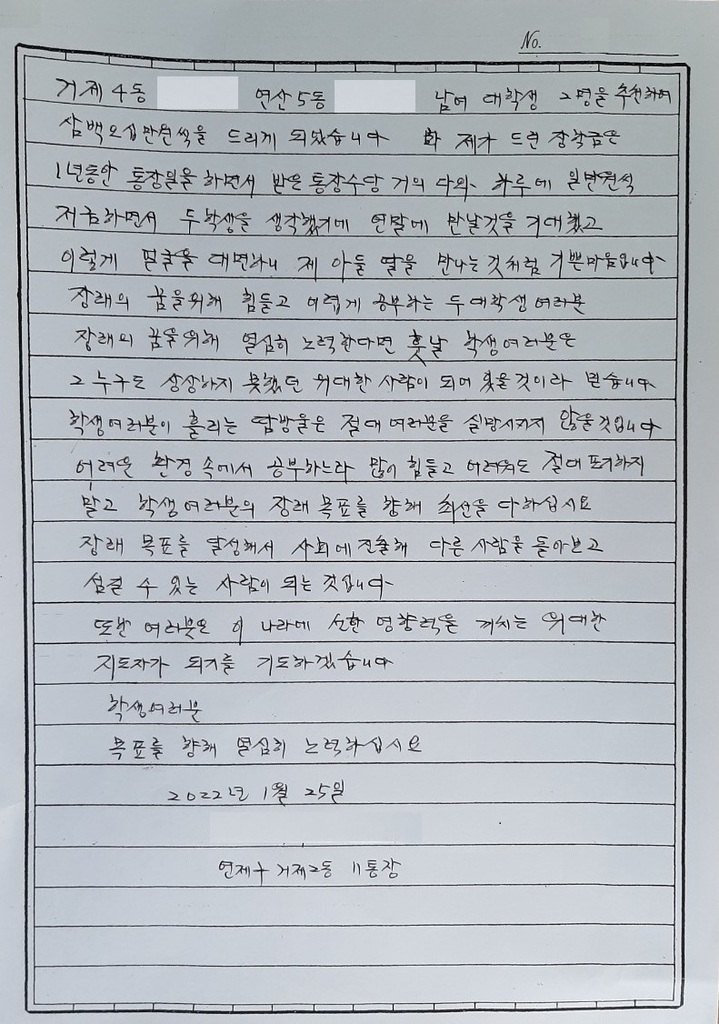 No.
거제4동 연산5동 남여 대학생 2명을 추천하며
삼백오십만원씩을 드리게 되었습니다 제가 드린 장학금은
1년동안 통장일을 하면서 받은 통장수당 거의 다와 하루에 일만원씩
저금하면서 두학생을 생각했기에 연말에 만날것을 기대했고
이렇게 얼굴을 대면하니 제 아들 딸을 만나는것처럼 기쁜마음입니다
장래의 꿈을위해 힘들고 어렵게 공부하는 두대학생 여러분
장래의 꿈을위해 열심히 노력한다면 훗날 학생여러분은
그 누구도 상상하지 못했던 위대한 사람이 되어 있을것이라 믿습니다
학생여러분이 흘리는 땀방울은 절대 여러분을 실망시키지 않을것입니다
어려운 환경 속에서 공부하느라 많이 힘들고 어려워도 절대 포기하지
말고 학생여러분의 장래 목표를 향해 최선을 다하십시요
장래 목표를 달성해서 사회에 진출해 다른 사람을 돌아보고
섬길 수 있는 사람이 되는 것입니다
또한 여러분은 이 나라에 선한 영향력을 끼치는 위대한
지도자가 되기를 기도하겠습니다
학생여러분
목표를 향해 열심히 노력하십시요
2022년 1월 25일
연제구 거제2동 11통장